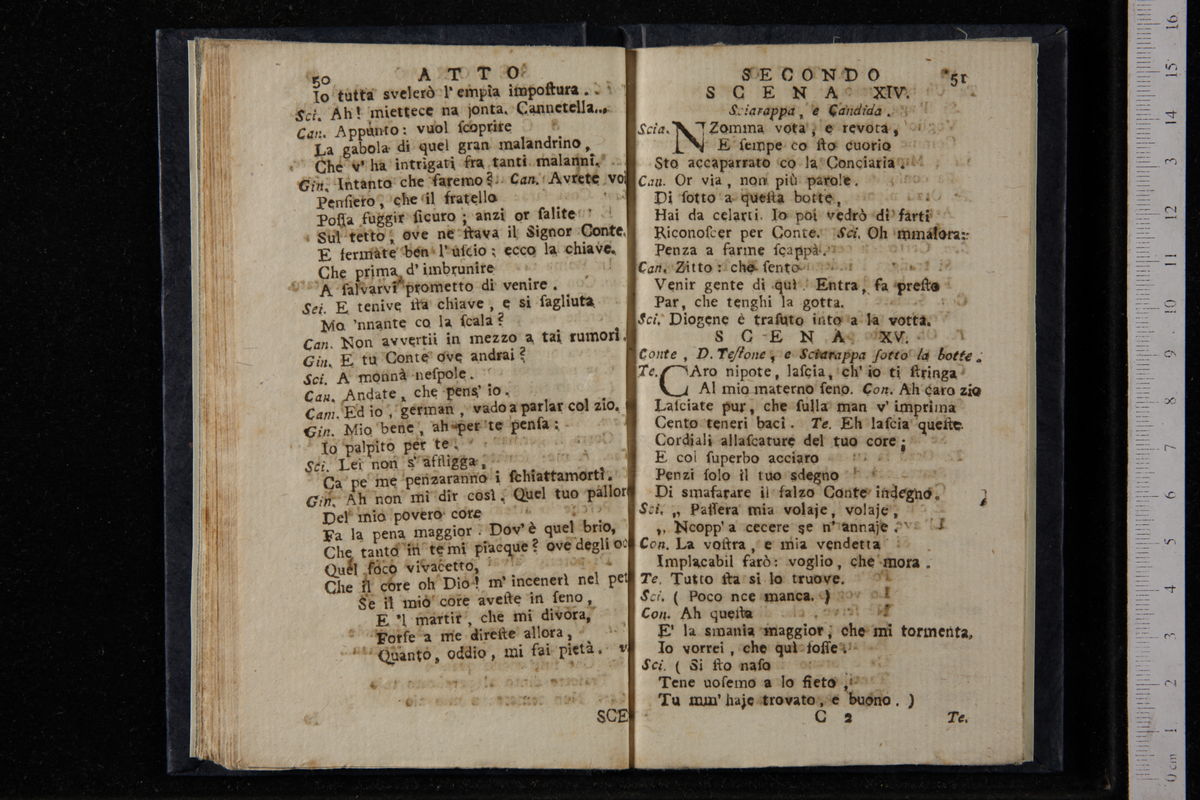 50 ATTO
Io tutta svelerò l'empia impoſtura. .
Sci. Ah! miettece na jonta. Cannetella...
Can. Appunto: vuol ſcoprire
La gabola di quel gran malandrino,
Che v'ha intrigati fra tanti malanni.
Gin. Intanto che faremo? Can. Avrete voi
Penſiero, che il fratello
Poſſa fuggir ſicuro; anzi or ſalite
Sul tetto, ove ne ſtava il Signor Conte.
E fermate ben l'uſcio: ecco la chiave.
Che prima d'imbrunire
A ſalvarvi prometto di venire.
Sci. E tenive ſta chiave, e si ſagliuta
Mo 'nnante co la ſcala?
Can. Non avvertii in mezzo a tai rumori.
Gin. E tu Conte ove andrai?
Sci. A monnà neſpole.
Can. Andate, che pens' io.
Cam. Ed io, german, vado a parlar col zio.
Gin. Mio bene, ah per te penſa:
Io palpito per te.
Sci. Lei non s'affligga,
Ca pe me penzaranno i ſchiattamorti.
Gin. Ah non mi dir così. Quel tuo pallor
Del mio povero core
Fa la pena maggior. Dov'è quel brio,
Che tanto in te mi piacque? ove degli oc
Quel foco vivacetto,
Che il core oh Dio! m'incenerì nel pet
Se il mio core aveſte in ſeno,
E 'l martir, che mi divora,
Forſe a me direſte allora,
Quanto, oddio, mi fai pietà. v
SCE
SECONDO 51
SCENA XIV.
Sciarappa, e Candida.
Scia. NZomma vota, e revota,
E ſempe co ſto cuorio
Sto accaparrato co la Conciaria.
Can. Or via, non più parole.
Di ſotto a queſta botte,
Hai da celarti. Io poi vedrò di farti
Riconoſcer per Conte. Sci. Oh mmalora:
Penza a farme ſcappà.
Can. Zitto: che ſento
Venir gente di quì. Entra, fa preſto
Par, che tenghi la gotta.
Sci. Diogene è traſuto into a la votta.
SCENA XV.
Conte, D. Teſtone, e Sciarappa ſotto la botte.
Te. CAro nipote, laſcia, ch'io ti ſtringa
Al mio materno ſeno. Con. Ah caro zio
Laſciate pur, che ſulla man v'imprima
Cento teneri baci. Te. Eh laſcia queſte
Cordiali allaſcature del tuo core;
E coi ſuperbo acciaro
Penzi ſolo il tuo sdegno
Di smafarare il falzo Conte indegno.
Sci. „ Paſſera mia volaje, volaje,
„ Ncopp'a cecere se n'annaje.
Con. La voſtra, e mia vendetta
Implacabil farò: voglio, che mora.
Te. Tutto ſta si lo truove.
Sci. ( Poco nce manca. )
Con. Ah queſta
E' la smania maggior, che mi tormenta,
Io vorrei, che quì foſſe.
Sci. ( Si ſto naſo
Tene uoſemo a lo fieto,
Tu mm'haje trovato, e buono. )
C 2 Te.